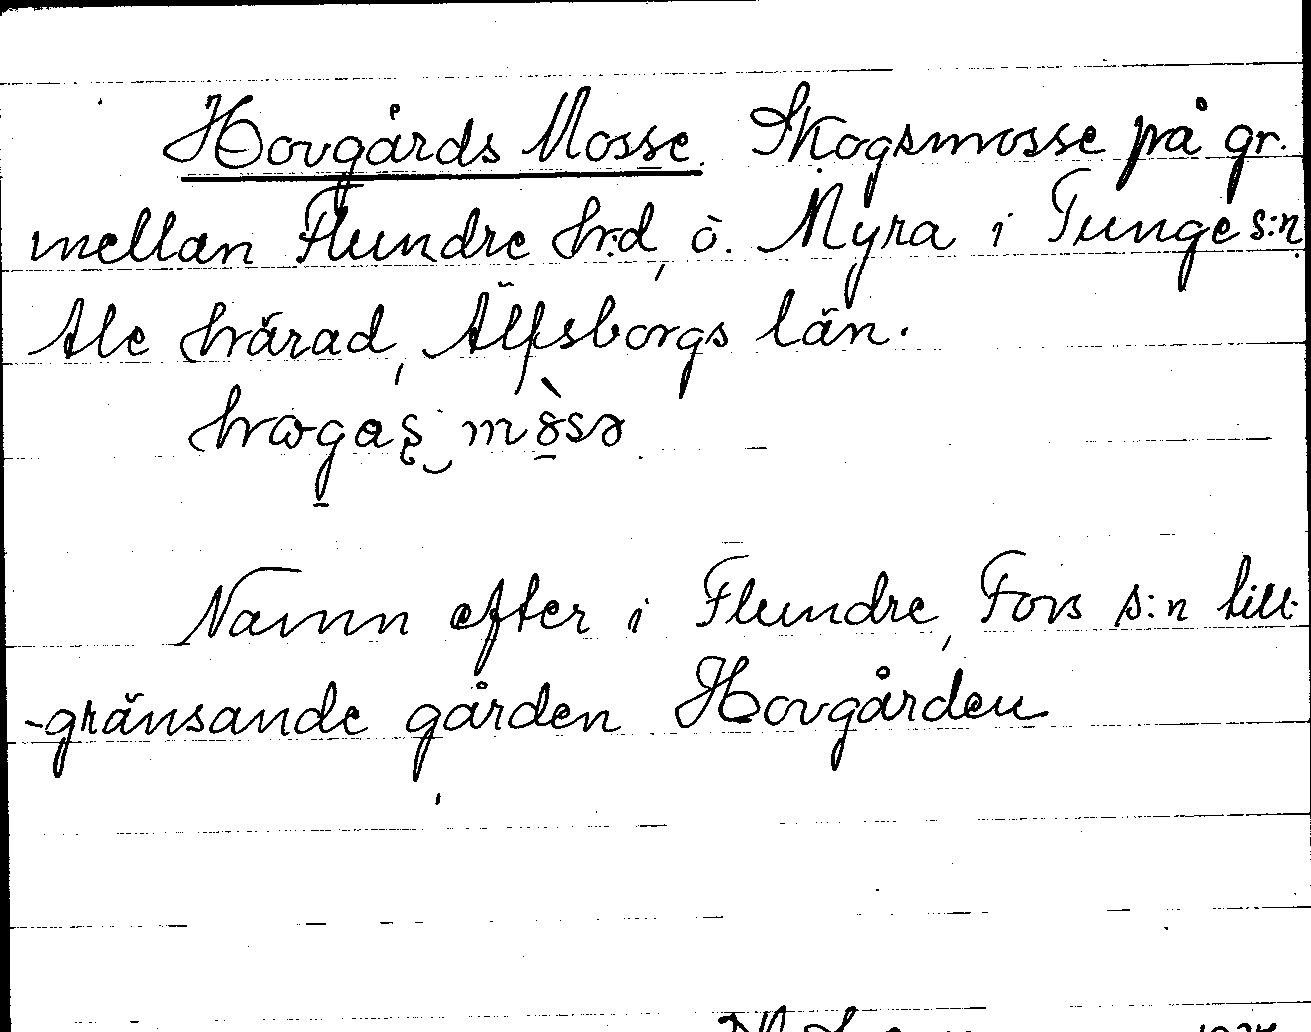 Hovgårds Mosse. Skogsmosse på gr.
mellan Flundre h:d, o. Myra i Tunge s:n,
Ale härad, Älfsborgs län.
Namn efter i Flundre, Fors s:n till-
-gränsande gården Hovgården